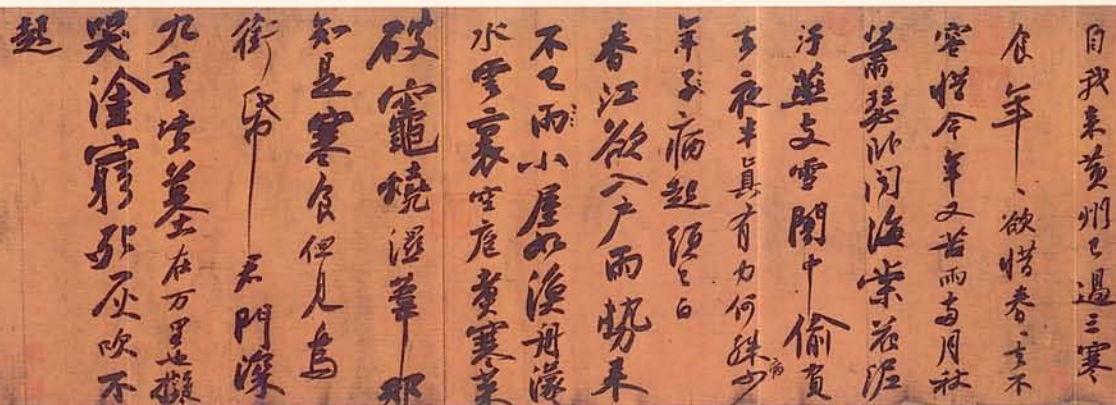 自我來黃州已過三寒
食年〻欲惜春〻去不
容惜今年又苦雨兩月秋
蕭瑟臥聞海棠花泥
汙燕支雪闇中偷負
去夜半真有力何殊病少
年子病起須已白
春江欲入戶雨勢來
不已雨小屋如漁舟濛〻
水雲裏空庖煮寒菜
破竈燒濕葦那
知是寒食但見烏
銜帋君門深
九重墳墓在万里也擬
哭塗窮死灰吹不
起